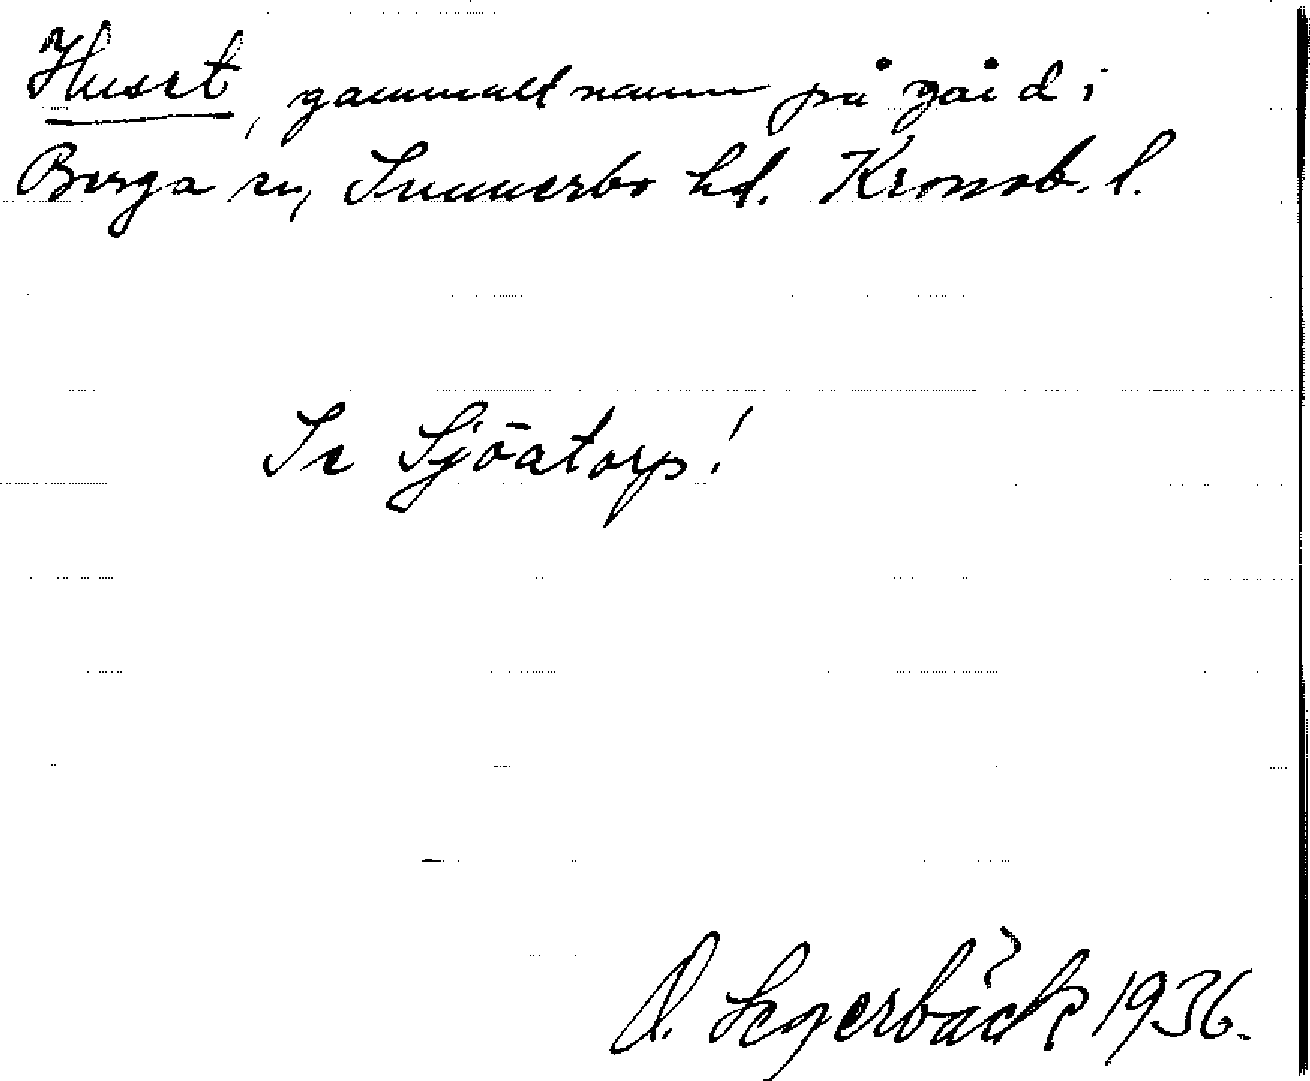 Huset, gammalt namn på gård i
Berga sn, Sunnerbo hd. Kronob. l.
Se Sjöatorp!
O. Segerbäck 1936.